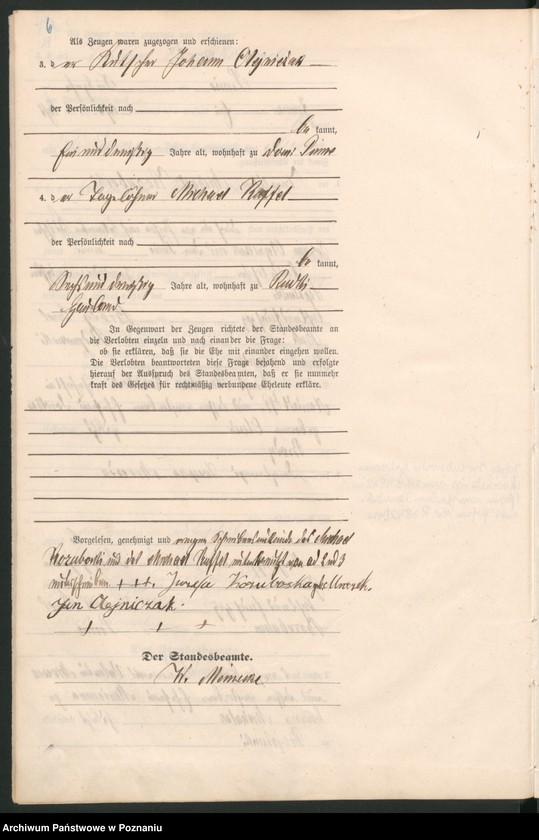 6
Als Zeugen waren zugezogen und erschienen:
3. der Kutscher Johann Olejniczak
der Persönlichkeit nach
be kannt,
Jahre alt, wohnhaft zu
4. der Tagelöhner Michael
der Persönlichkeit nach
be kannt,
Sechsunddreißig Jahre alt, wohnhaft zu Rudki
Hauland
In Gegenwart der Zeugen richtete der Standesbeamte an
die Verlobten einzeln und nach einander die Frage:
ob sie erklären, daß sie die Ehe mit einander eingehen wollen.
Die Verlobten beantworteten diese Frage bejahend und erfolgte
hierauf der Ausspruch des Standesbeamten, daß er sie nunmehr
kraft des Gesetzes für rechtmäßig verbundene Eheleute erkläre.
Vorgelesen, genehmigt und wegen Schreibensunkunde des Michael
und des Michael
+ ++. Józefa
Jan Olejniczak.
+ + +
Der Standesbeamte.
W. Meinecke
Archiwum Państwowe w Poznaniu